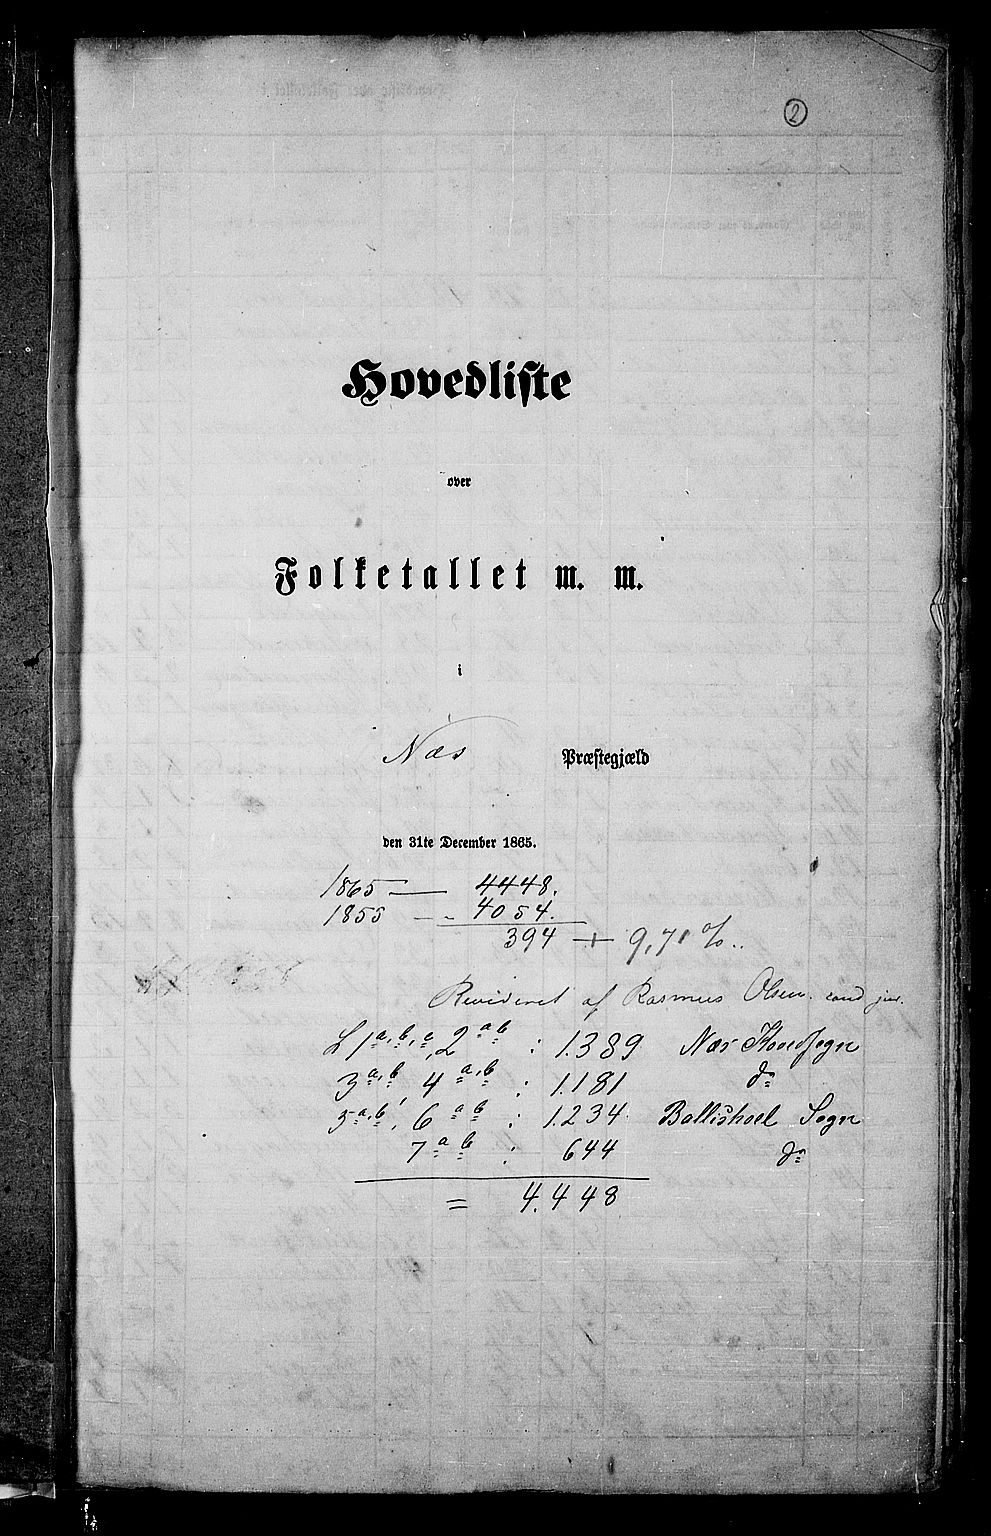 2
Hovedliste
over
Folketallet m. m.
i
Næs Præstegjæld
den 31te December 1865.
1865 — 4448.
1855 — 4054.
394 + 9,71 %.
Revideret af Rasmus Olsen. cand jur.
L 1 a, b, a, 2 a b : 1.389 Næs Hovedsogn
3 a, b 4 a, b : 1.181 do
5 a, b, 6 a b : 1.234 Ballishoel Sogn
7 a b : 644 do
= 4.448